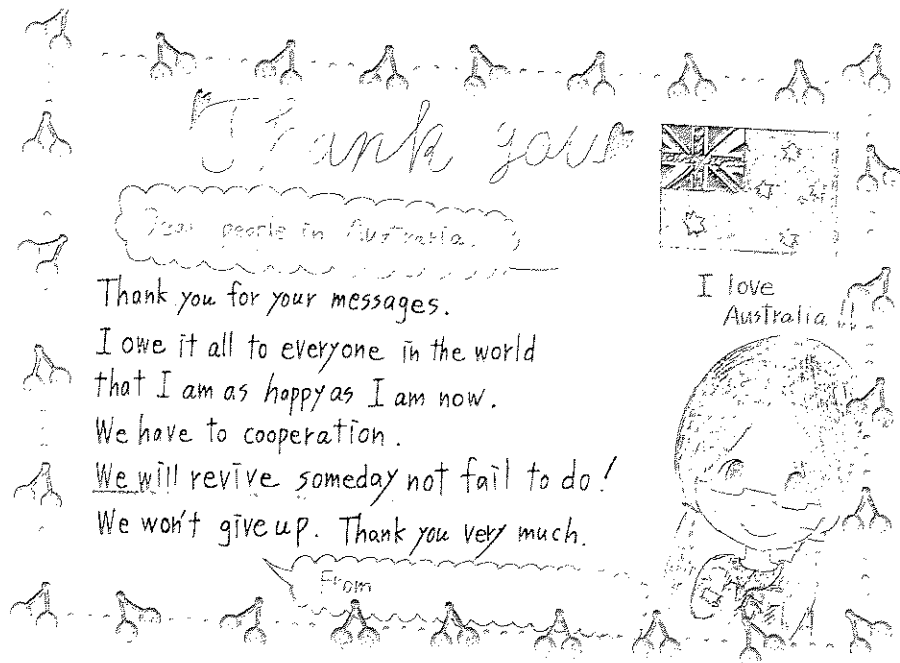 Thank you
Dear people in Australia.
Thank you for your messages.
I owe it all to everyone in the world
that I am as happy as I am now.
We have to cooperation.
We will revive someday not fail to do!
We won't give up. Thank you very much.
From
I love
Australia!!